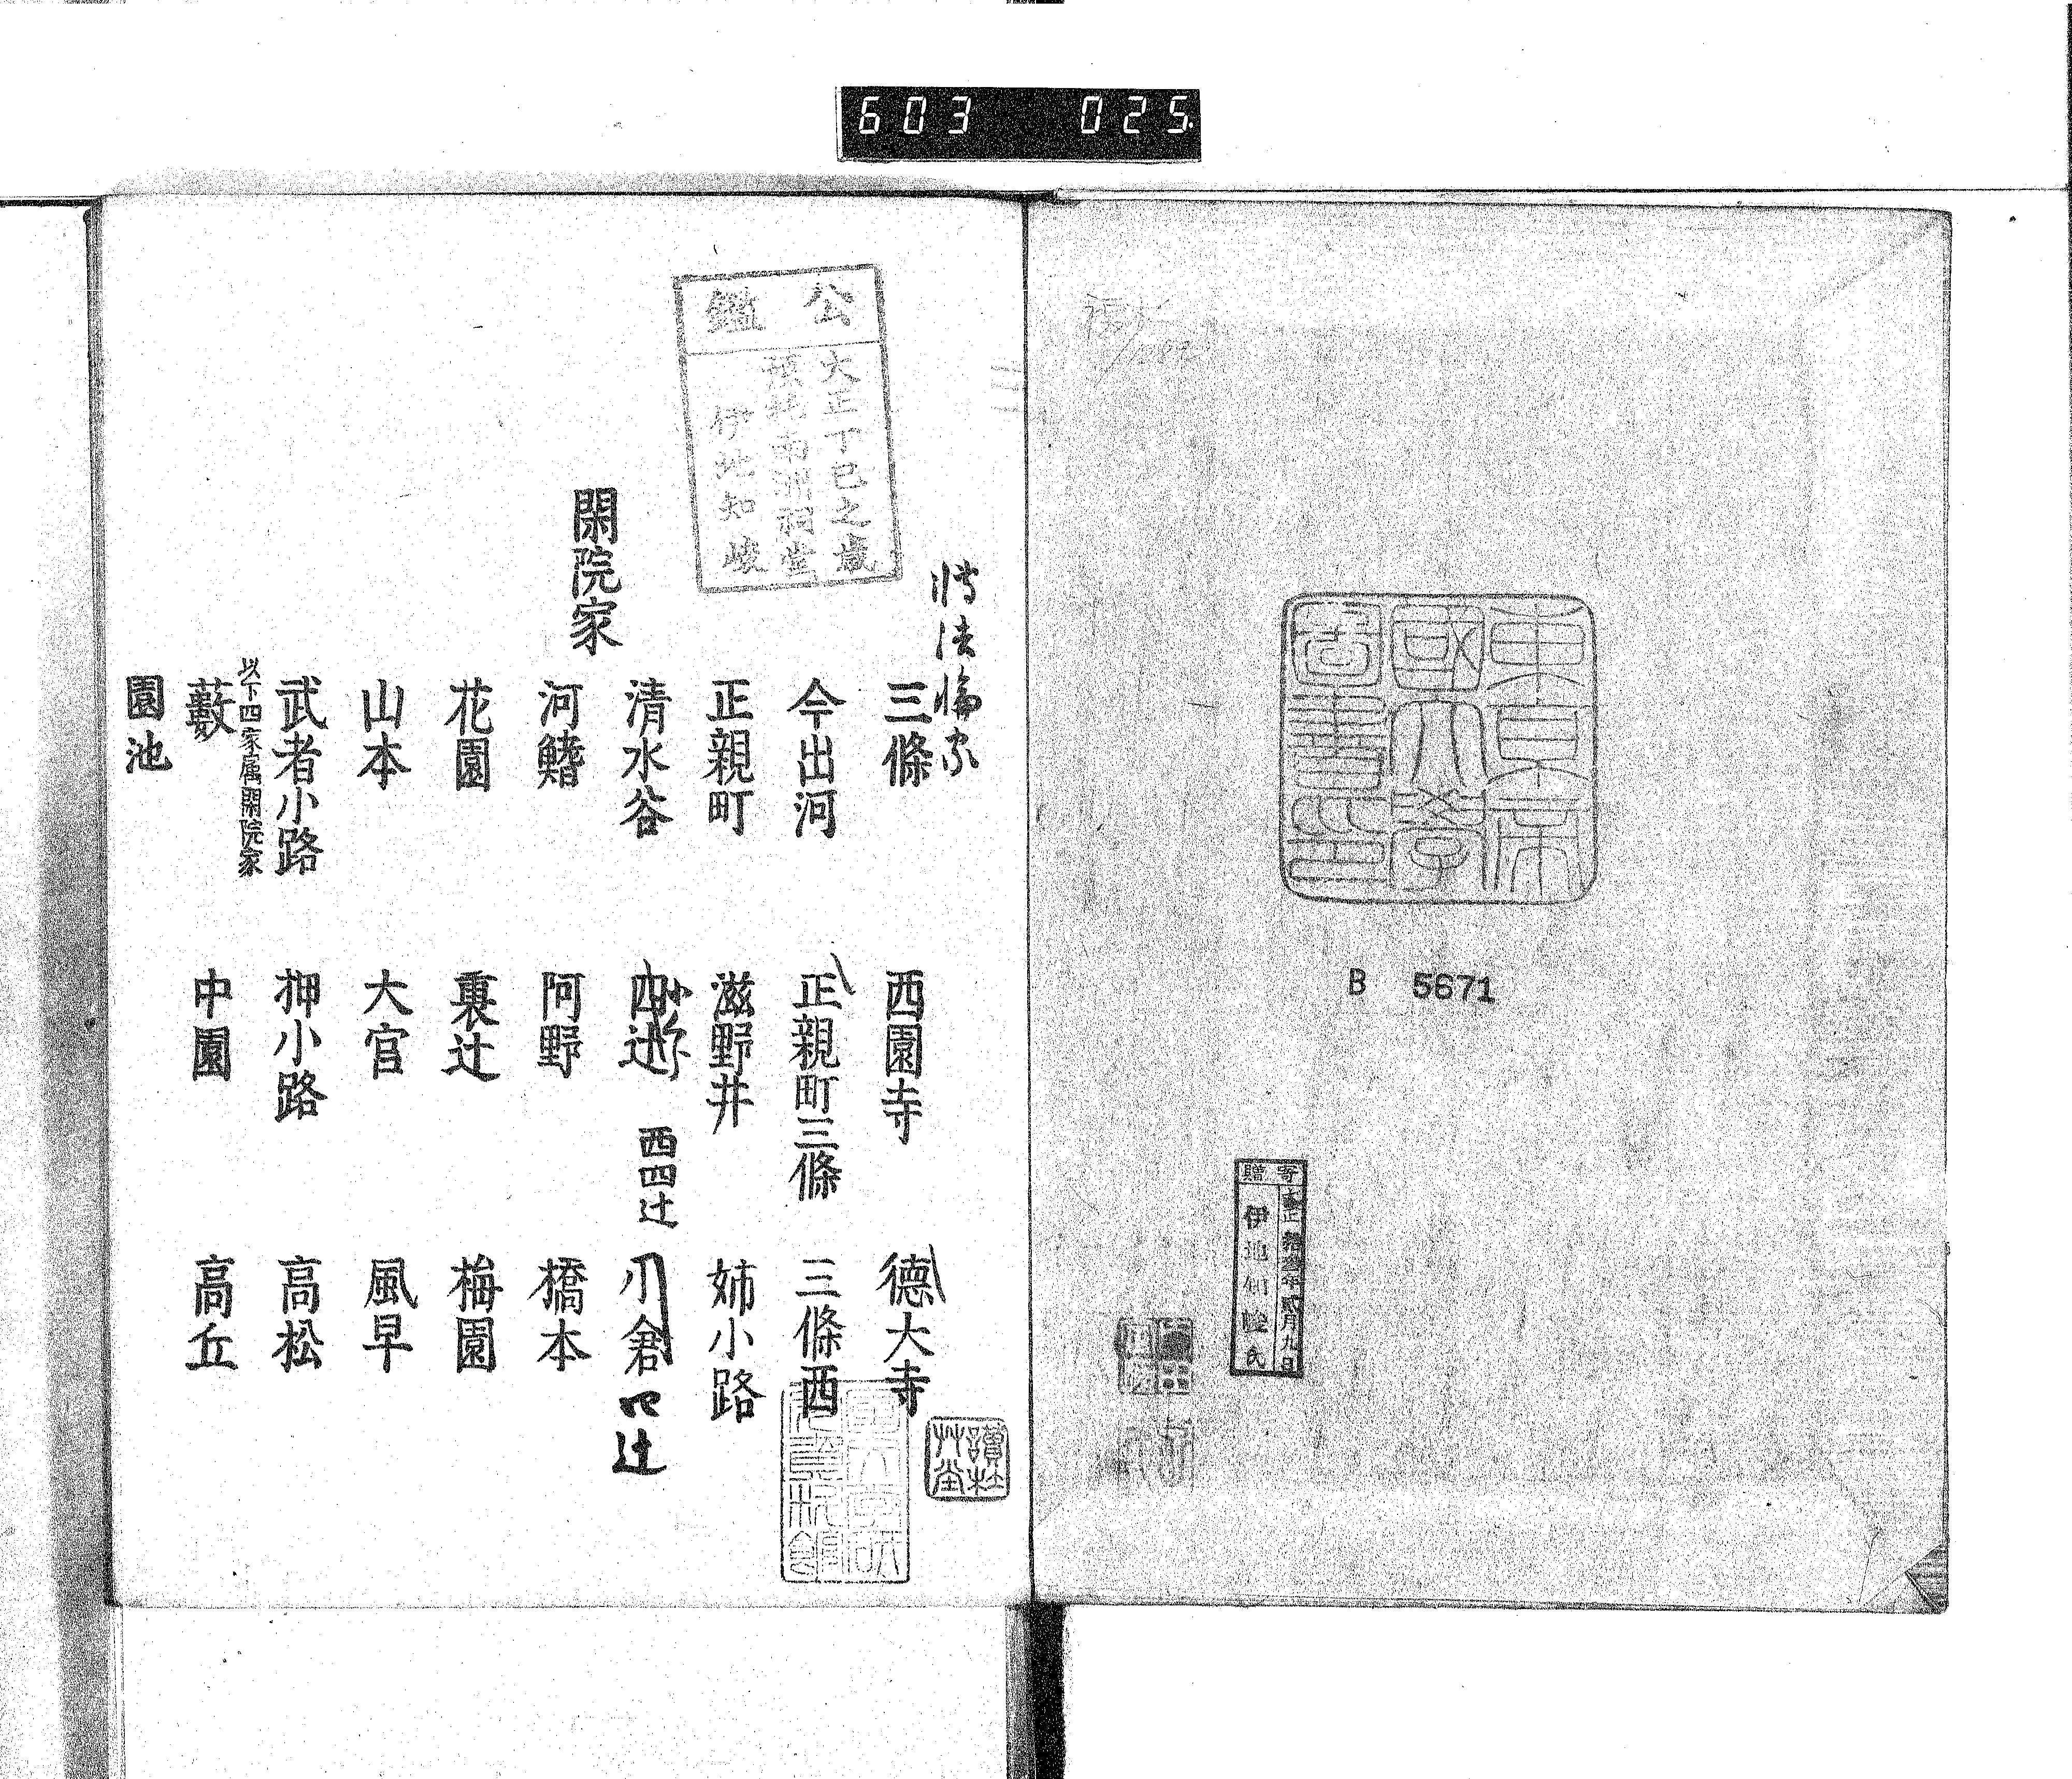 603 025
東京帝
國大學
圖書印
B 5671
寄贈
大正拾參年貳月九日
伊地知峻氏
公鑑
大正丁巳之歲
南洲祠堂
伊地知峻
轉法輪家
三條 西園寺 德大寺
讀杜艸堂
今出河 正親町三條 三條西
正親町 滋野井 姉小路
清水谷 四辻 西四辻 小倉 四辻
閑院家
河鰭 阿野 橋本
花園 裏辻 梅園
山本 大宮 風早
武者小路 押小路 高松
以下四家属閑院家
藪 中園 高丘
園池